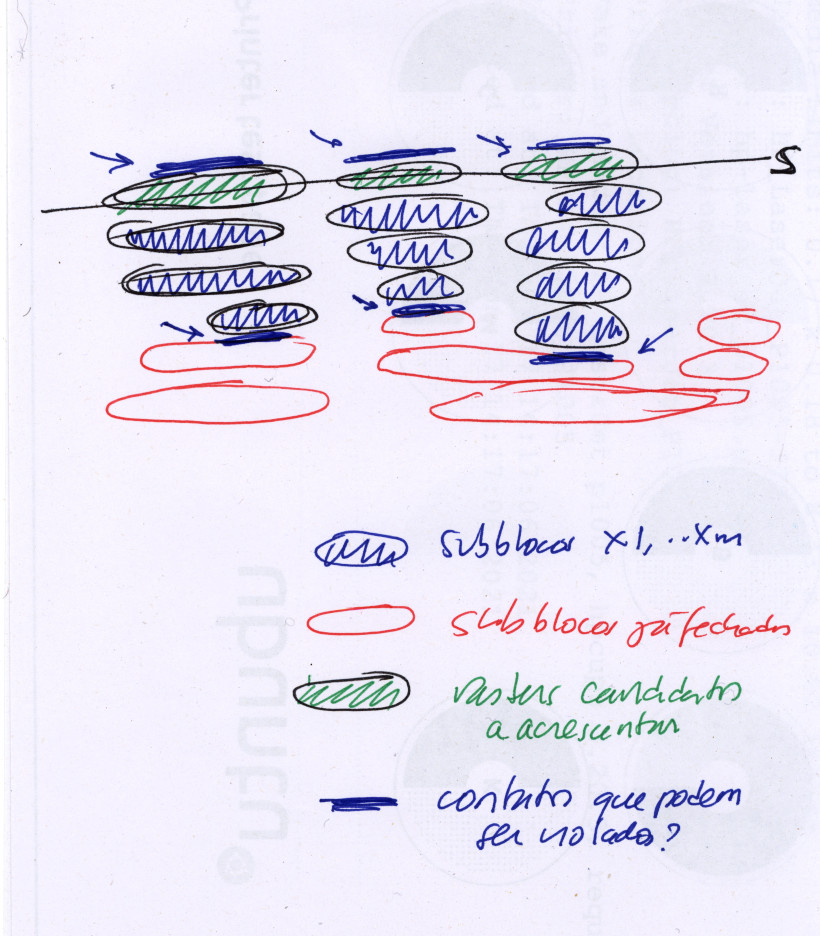 S
subblocos X1, ..Xm
subblocos já fechados
rasters candidatos
a acrescentar
contatos que podem
ser violados?
ubuntu